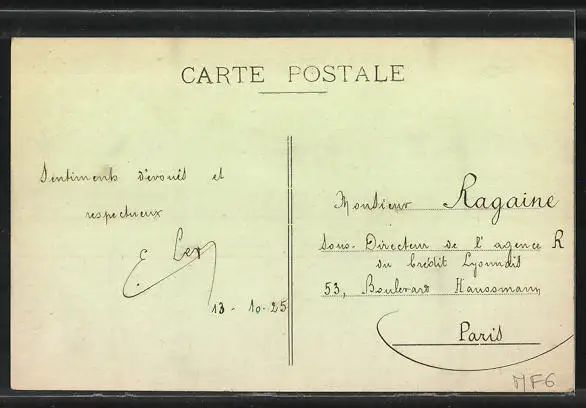 CARTE POSTALE
Sentiments dévoués et
respectueux
13 - 10 - 25
Monsieur Ragaine
Sous-Directeur de l'agence R
du Crédit Lyonnais
53, Boulevard Haussmann,
Paris
MF6